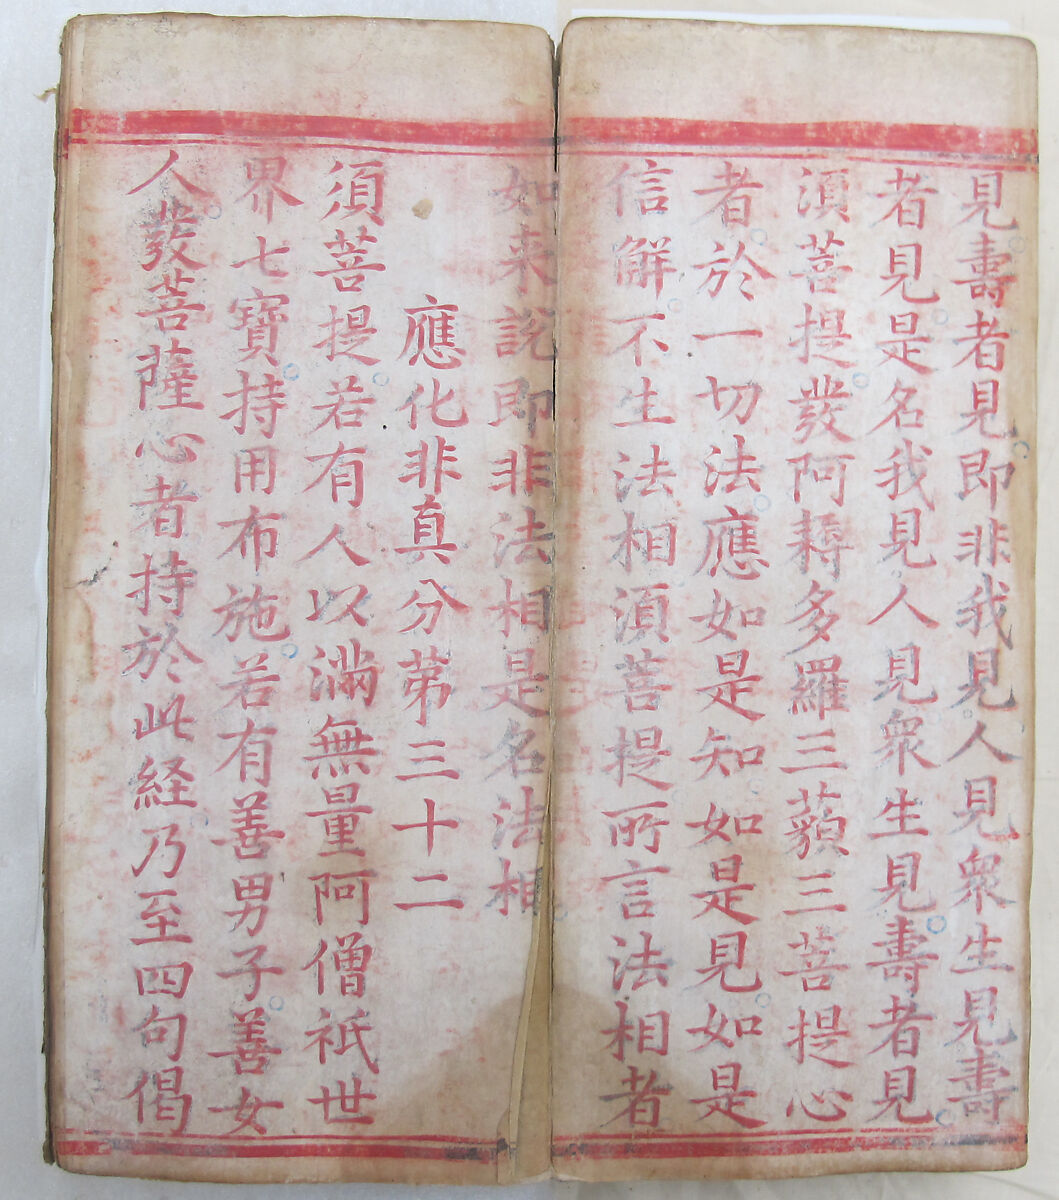 見壽者見即非我見人見衆生見壽
者見是名我見人見衆生見壽者見
湏菩提發阿耨多羅三藐三菩提心
者於一切法應如是知如是見如是
信解不生法相湏菩提所言法相者
如来説即非法相是名法相
應化非真分苐三十二
須菩提若有人以滿無量阿僧祇世
界七寶持用布施若有善男子善女
人發菩薩心者持於此経乃至四句偈